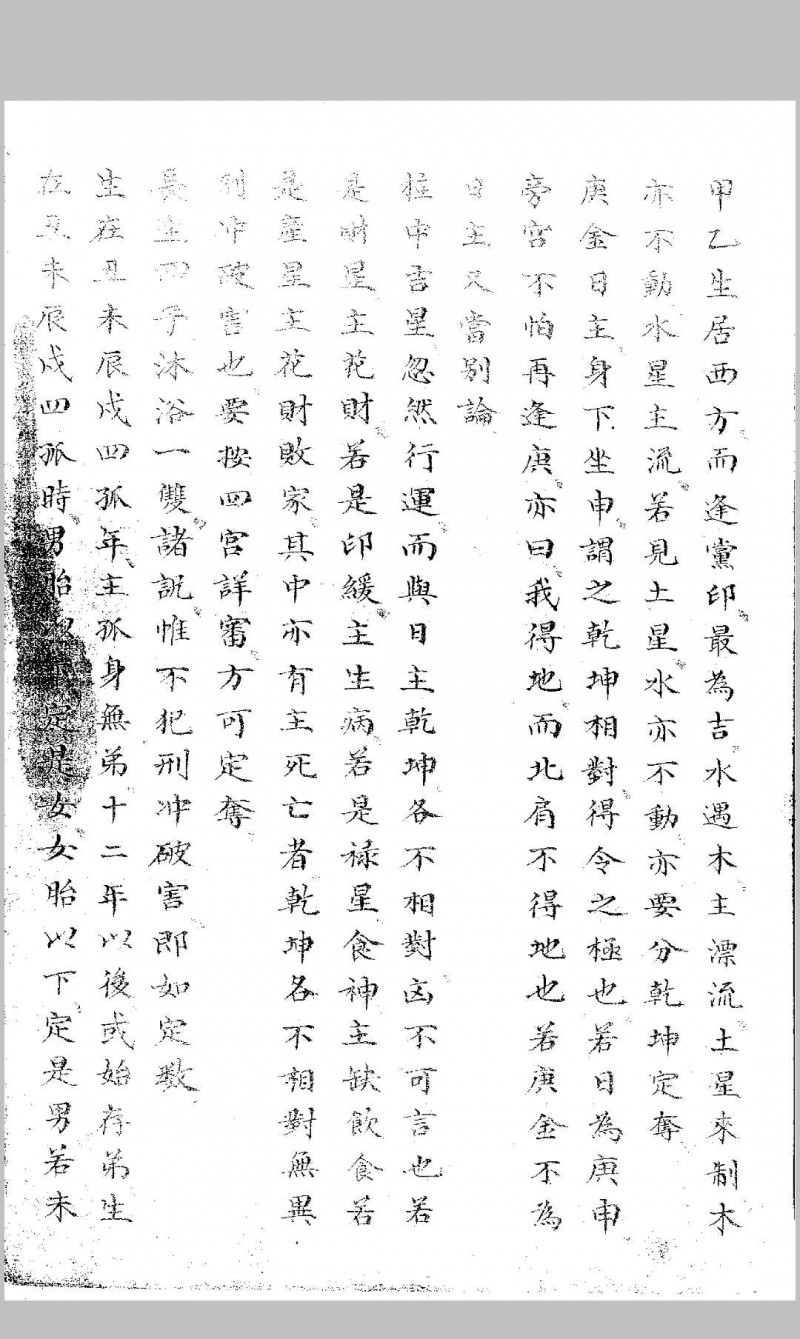 甲乙生居西方而逢黨印最為吉水遇木主漂流土星來制木
亦不動水星主流若見土星水亦不動亦要分乾坤定奪
庚金日主身下坐申謂之乾坤相對得令之極也若日為庚申
旁宮不怕再逢庚亦曰我得地而北肩不得地也若庚金不為
日主又當別論
柱中吉星忽然行運而與日主乾坤各不相對凶不可言也若
是財星主花財若是印緩主生病若是祿星食神主缺飲食若
是產星主花財敗家其中亦有主死亡者乾坤各不相對無異
刑冲破害也要按四宮詳審方可定奪
長生四子沐浴一雙諸說惟不犯刑冲破害即如定数
生在丑未辰戌四孤年主孤身無弟十二年以後或始存弟生
在丑未辰戌四孤時男胎定是女女胎以下定是男若未